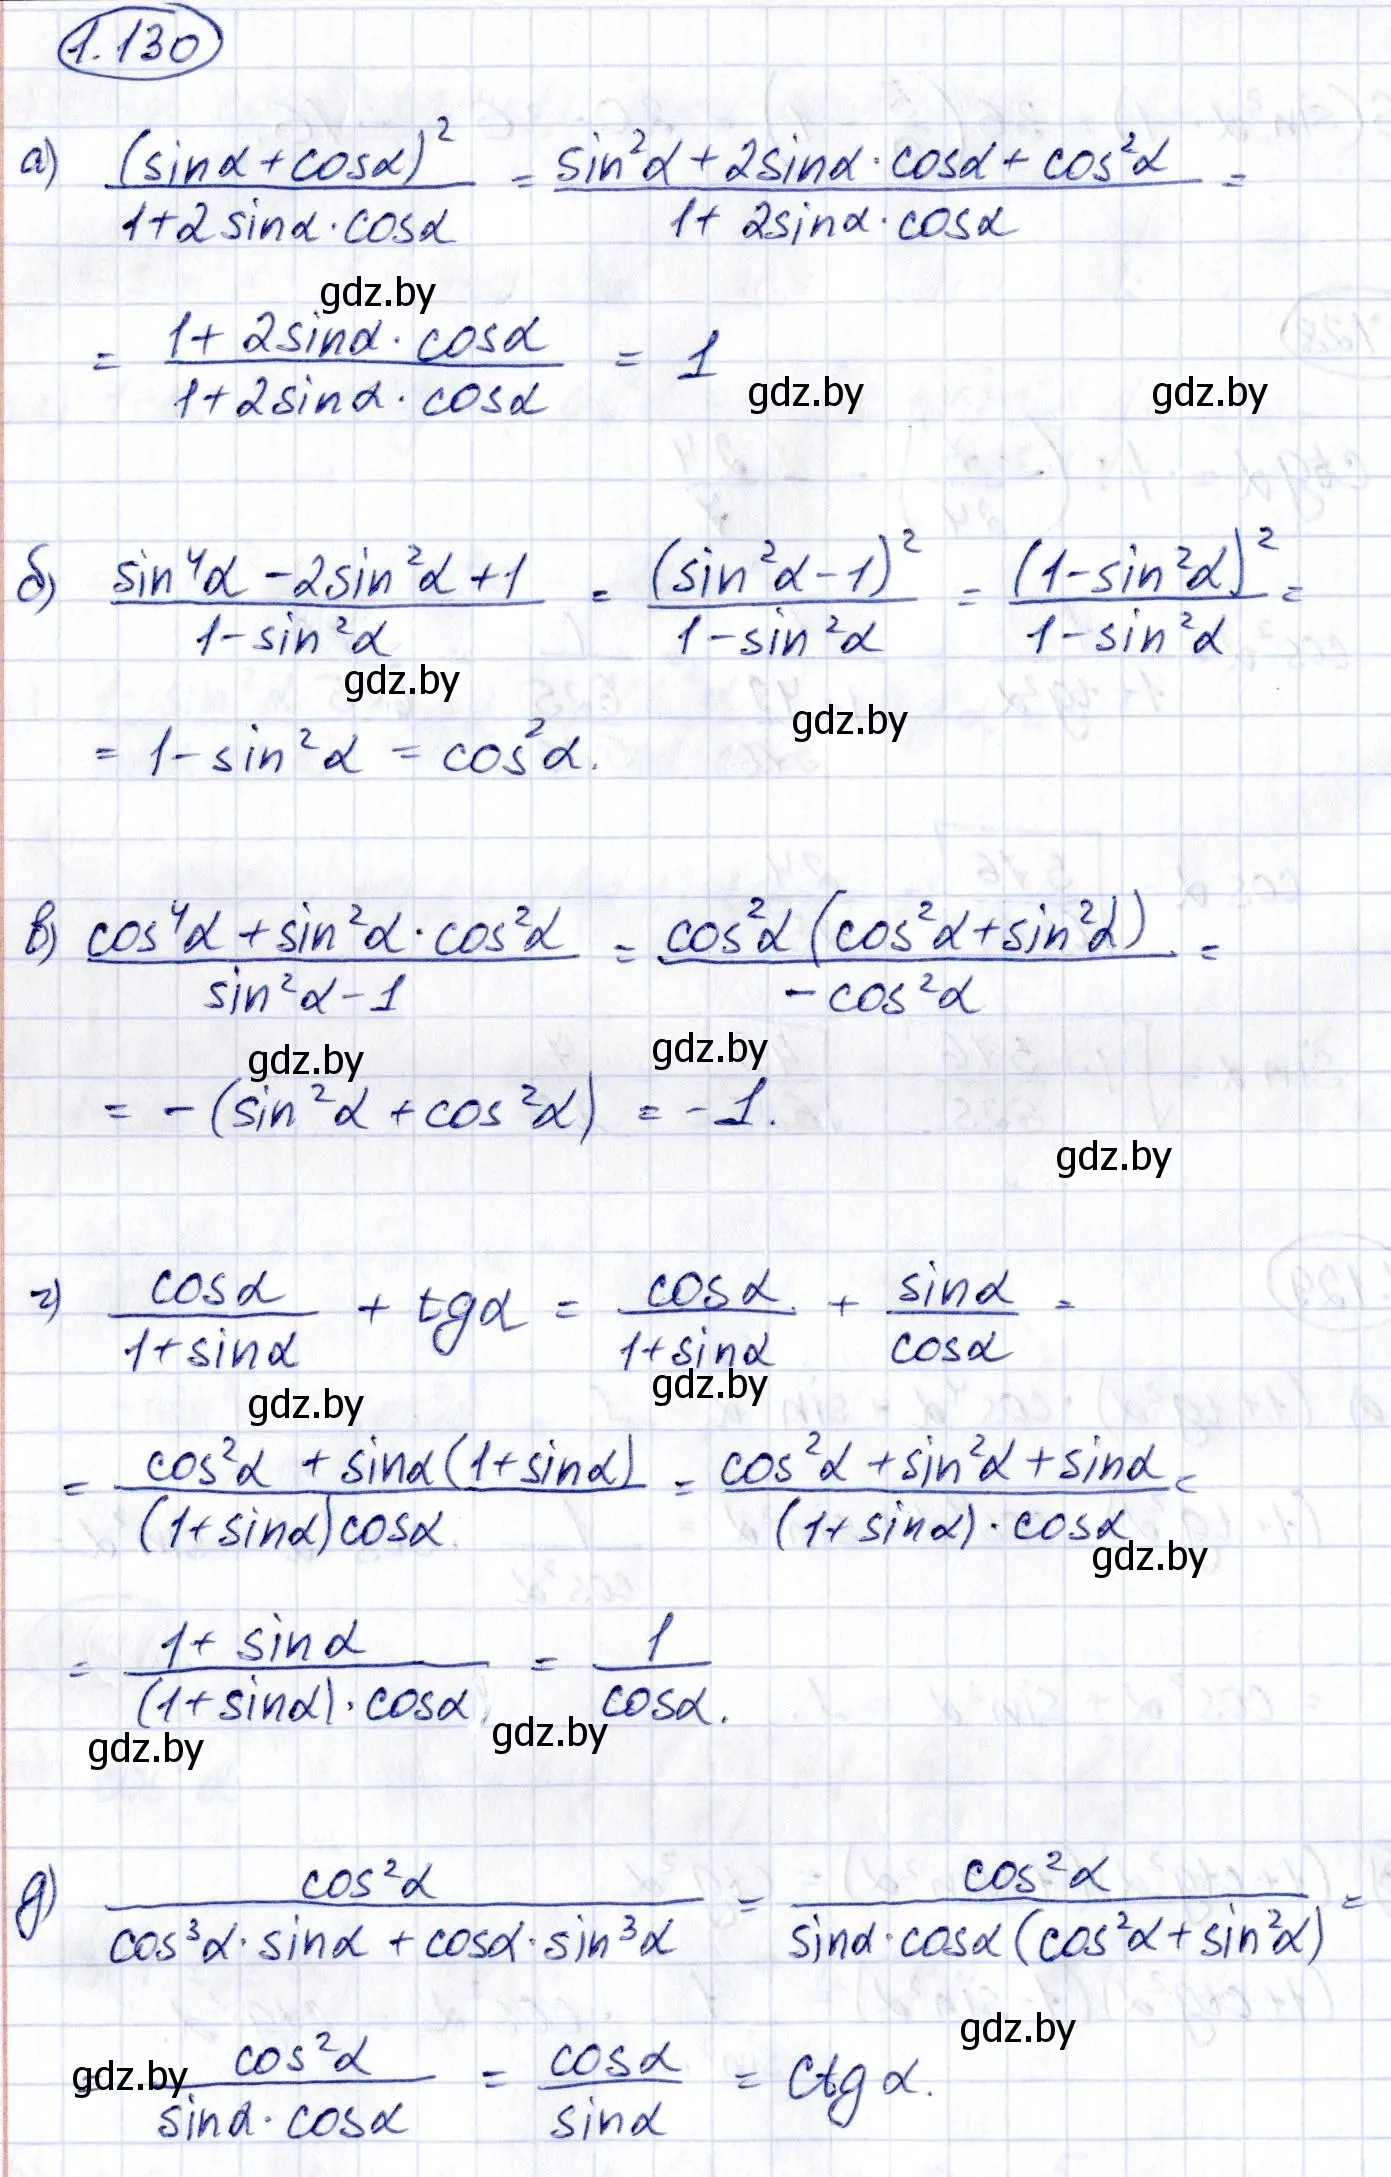 1.130
а) (sinα+cosα)²/(1+2sinα·cosα) = (sin²α+2sinα·cosα+cos²α)/(1+2sinα·cosα) =
gdz.by
= (1+2sinα·cosα)/(1+2sinα·cosα) = 1
gdz.by gdz.by
б) (sin⁴α-2sin²α+1)/(1-sin²α) = (sin²α-1)²/(1-sin²α) = (1-sin²α)²/(1-sin²α) =
gdz.by gdz.by
= 1-sin²α = cos²α.
в) (cos⁴α+sin²α·cos²α)/(sin²α-1) = cos²α(cos²α+sin²α)/(-cos²α) =
gdz.by gdz.by
= -(sin²α+cos²α) = -1.
gdz.by
г) cosα/(1+sinα) + tgα = cosα/(1+sinα) + sinα/cosα =
gdz.by gdz.by
= (cos²α+sinα(1+sinα))/((1+sinα)cosα) = (cos²α+sin²α+sinα)/((1+sinα)·cosα) =
gdz.by
= (1+sinα)/((1+sinα)·cosα) = 1/cosα.
gdz.by gdz.by
д) cos²α/(cos³α·sinα+cosα·sin³α) = cos²α/(sinα·cosα(cos²α+sin²α)) =
gdz.by
gdz.by = cos²α/(sinα·cosα) = cosα/sinα = ctgα.